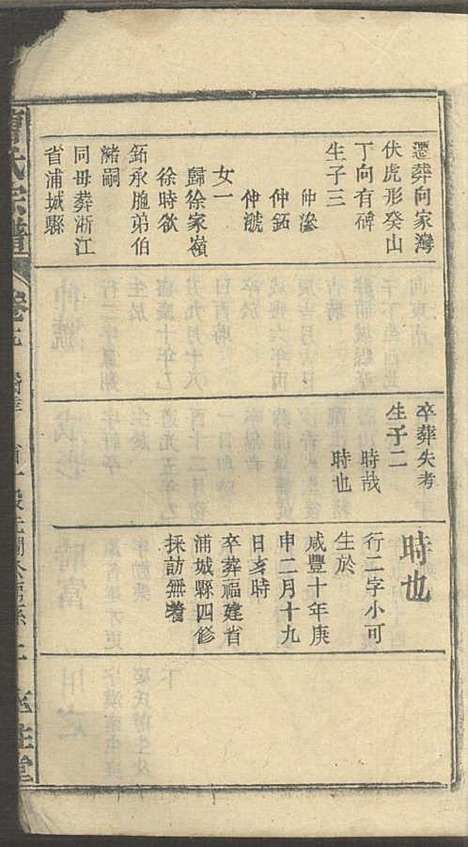 遷葬向家灣
伏虎形癸山
丁向有碑
生子三
仲滲
仲鉐
仲㵽
女一
歸徐家嶺
徐時欲
鉐永胞弟伯
瀦嗣
同母葬淅江
省浦城縣
卒葬失考
生子二
時哉
時也
時也
行二字小可
生於
咸豐十年庚
申二月十九
日亥時
卒葬福建省
浦城縣四修
採訪無着
氏宗譜
卷十